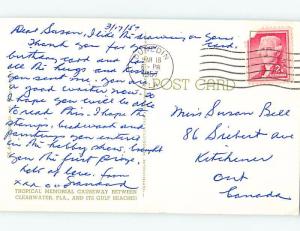 3/17/57
Dear Susan, I like the drawing on your
card.
Thank you for your
birthday card and for
all the hugs and kisses
you sent me. You are
a good writer now. So
I hope you will be able
to read this. I hope the
stamps, bookmark and
paintings you entered
in the hobby show, brought
you the first prize.
Lots of love. from
xxx oo Grandad
TROPICAL MEMORIAL CAUSEWAY BETWEEN
CLEARWATER, FLA., AND ITS GULF BEACHES
POST CARD
MAR 18
PM
2¢
Miss Susan Bell
86 Siebert Ave
Kitchener
Ont
Canada